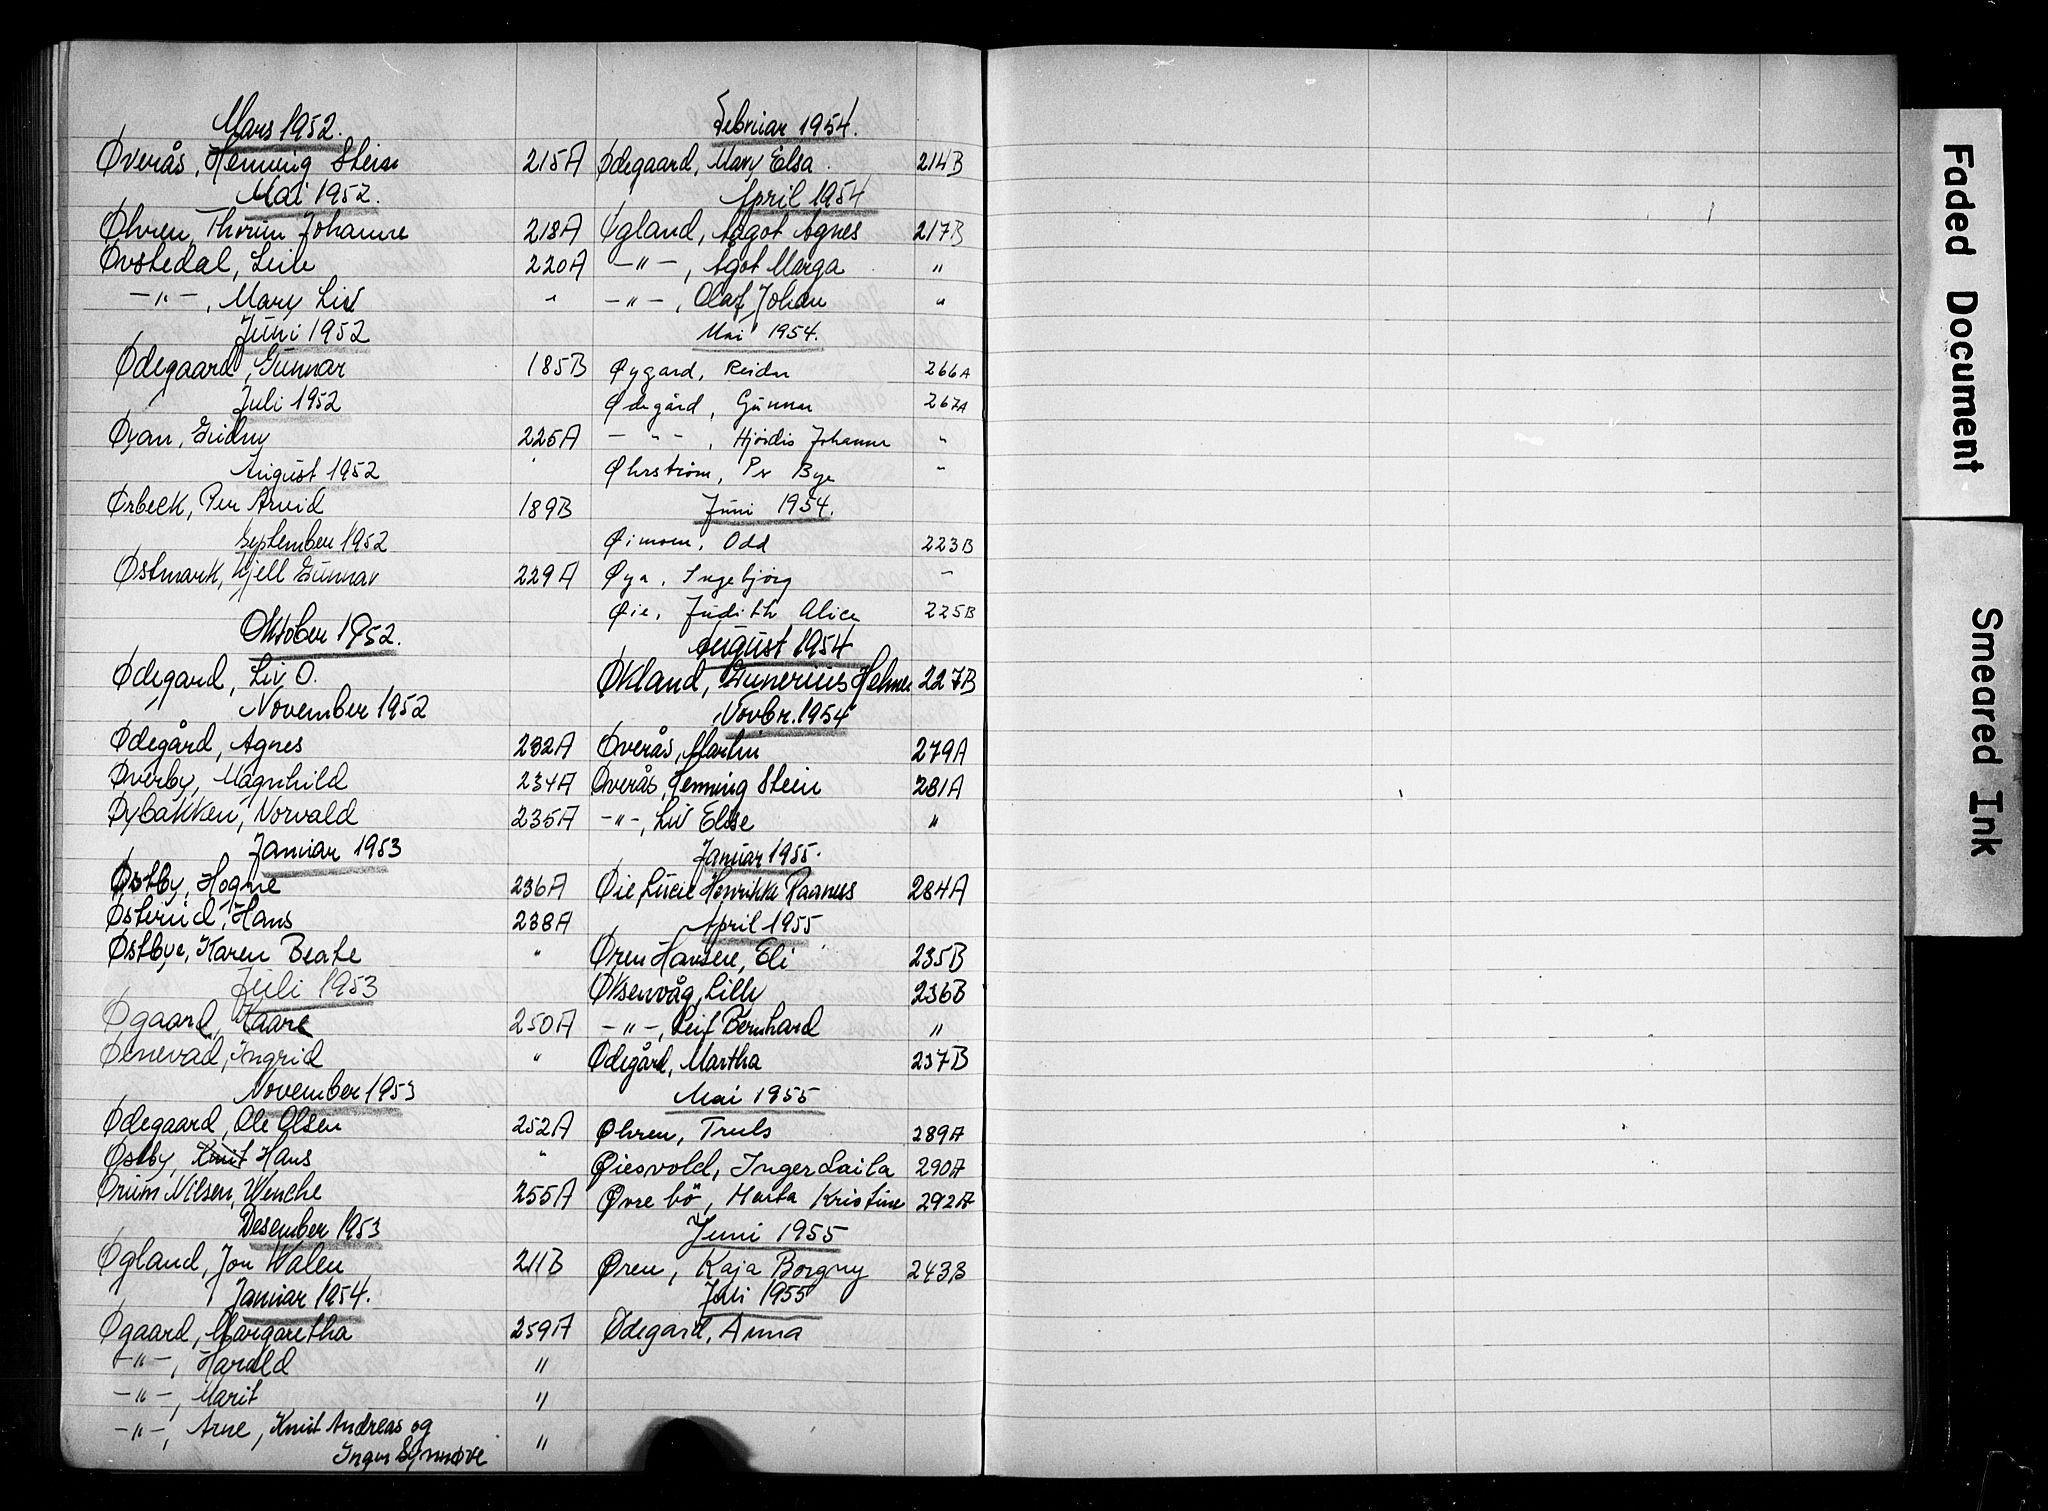 Mars 1952.
Øverås, Henning Stein 215A
Mai 1952.
Øhren, Thorun Johanne 218A
Øvstedal, Leile 220A
-"-, Mary Liv "
Juni 1952
Ødegaard, Gunnar 185B
Juli 1952
Øyan, Gudny 225A
August 1952
Ørbeck, Per Arvid 189B
September 1952
Østmark, Kjell Gunnar 229A
Oktober 1952.
Ødegard, Liv O.
November 1952
Ødegård, Agnes 232A
Øverby, Magnhild 234A
Øybakken, Norvald 235A
Januar 1953
Østby, Hogne 236A
Østerud, Hans 238A
Østbye, Karen Beate "
Juli 1953
Øgaard, Kaare 250A
Ønevad, Ingrid "
November 1953
Ødegaard, Ole Olsen 252A
Østby, Knut Hans "
Ørum Nilsen, Wenche 255A
Desember 1953
Øgland, Jon Walen 211B
Januar 1954.
Øgaard, Margaretha 259A
-"-, Harald "
-"-, Marit "
-"-, Arne, Knut Andreas og
Inger Synnøve "
Februar 1954.
Ødegaard, Mary Elsa. 214B
April 1954
Øgland, Aagot Agnes 217B
-"-, Agot Marga "
-"-, Olaf Johan "
Mai 1954.
Øygard, Reidar 266A
Ødegård, Gunnar 267A
-"-, Hjördis Johanne "
Øhrström, Per Bye "
Juni 1954.
Øimoen, Odd 223B
Øya, Ingebjörg "
Øie, Judith Alice 225B
August 1954
Økland, Gunerius Helmer 227B
Novbr. 1954
Øverås, Martin 279A
Øverås, Henning Stein 281A
-"-, Liv Else "
Januar 1955.
Øie, Lucie Henrikke Raaness 284A
April 1955
Øren Hansen, Eli 235B
Øksenvåg, Lilly 236B
-"-, Leif Bernhard "
Ødegård, Martha 237B
Mai 1955
Øhren, Truls 289A
Øiesvold, Inger Laila 290A
Øvre bö, Marta Kristine 292A
Juni 1955
Øren, Kaja Borgny 243B
Juli 1955
Ødegard, Anna
Faded Document
Smeared Ink